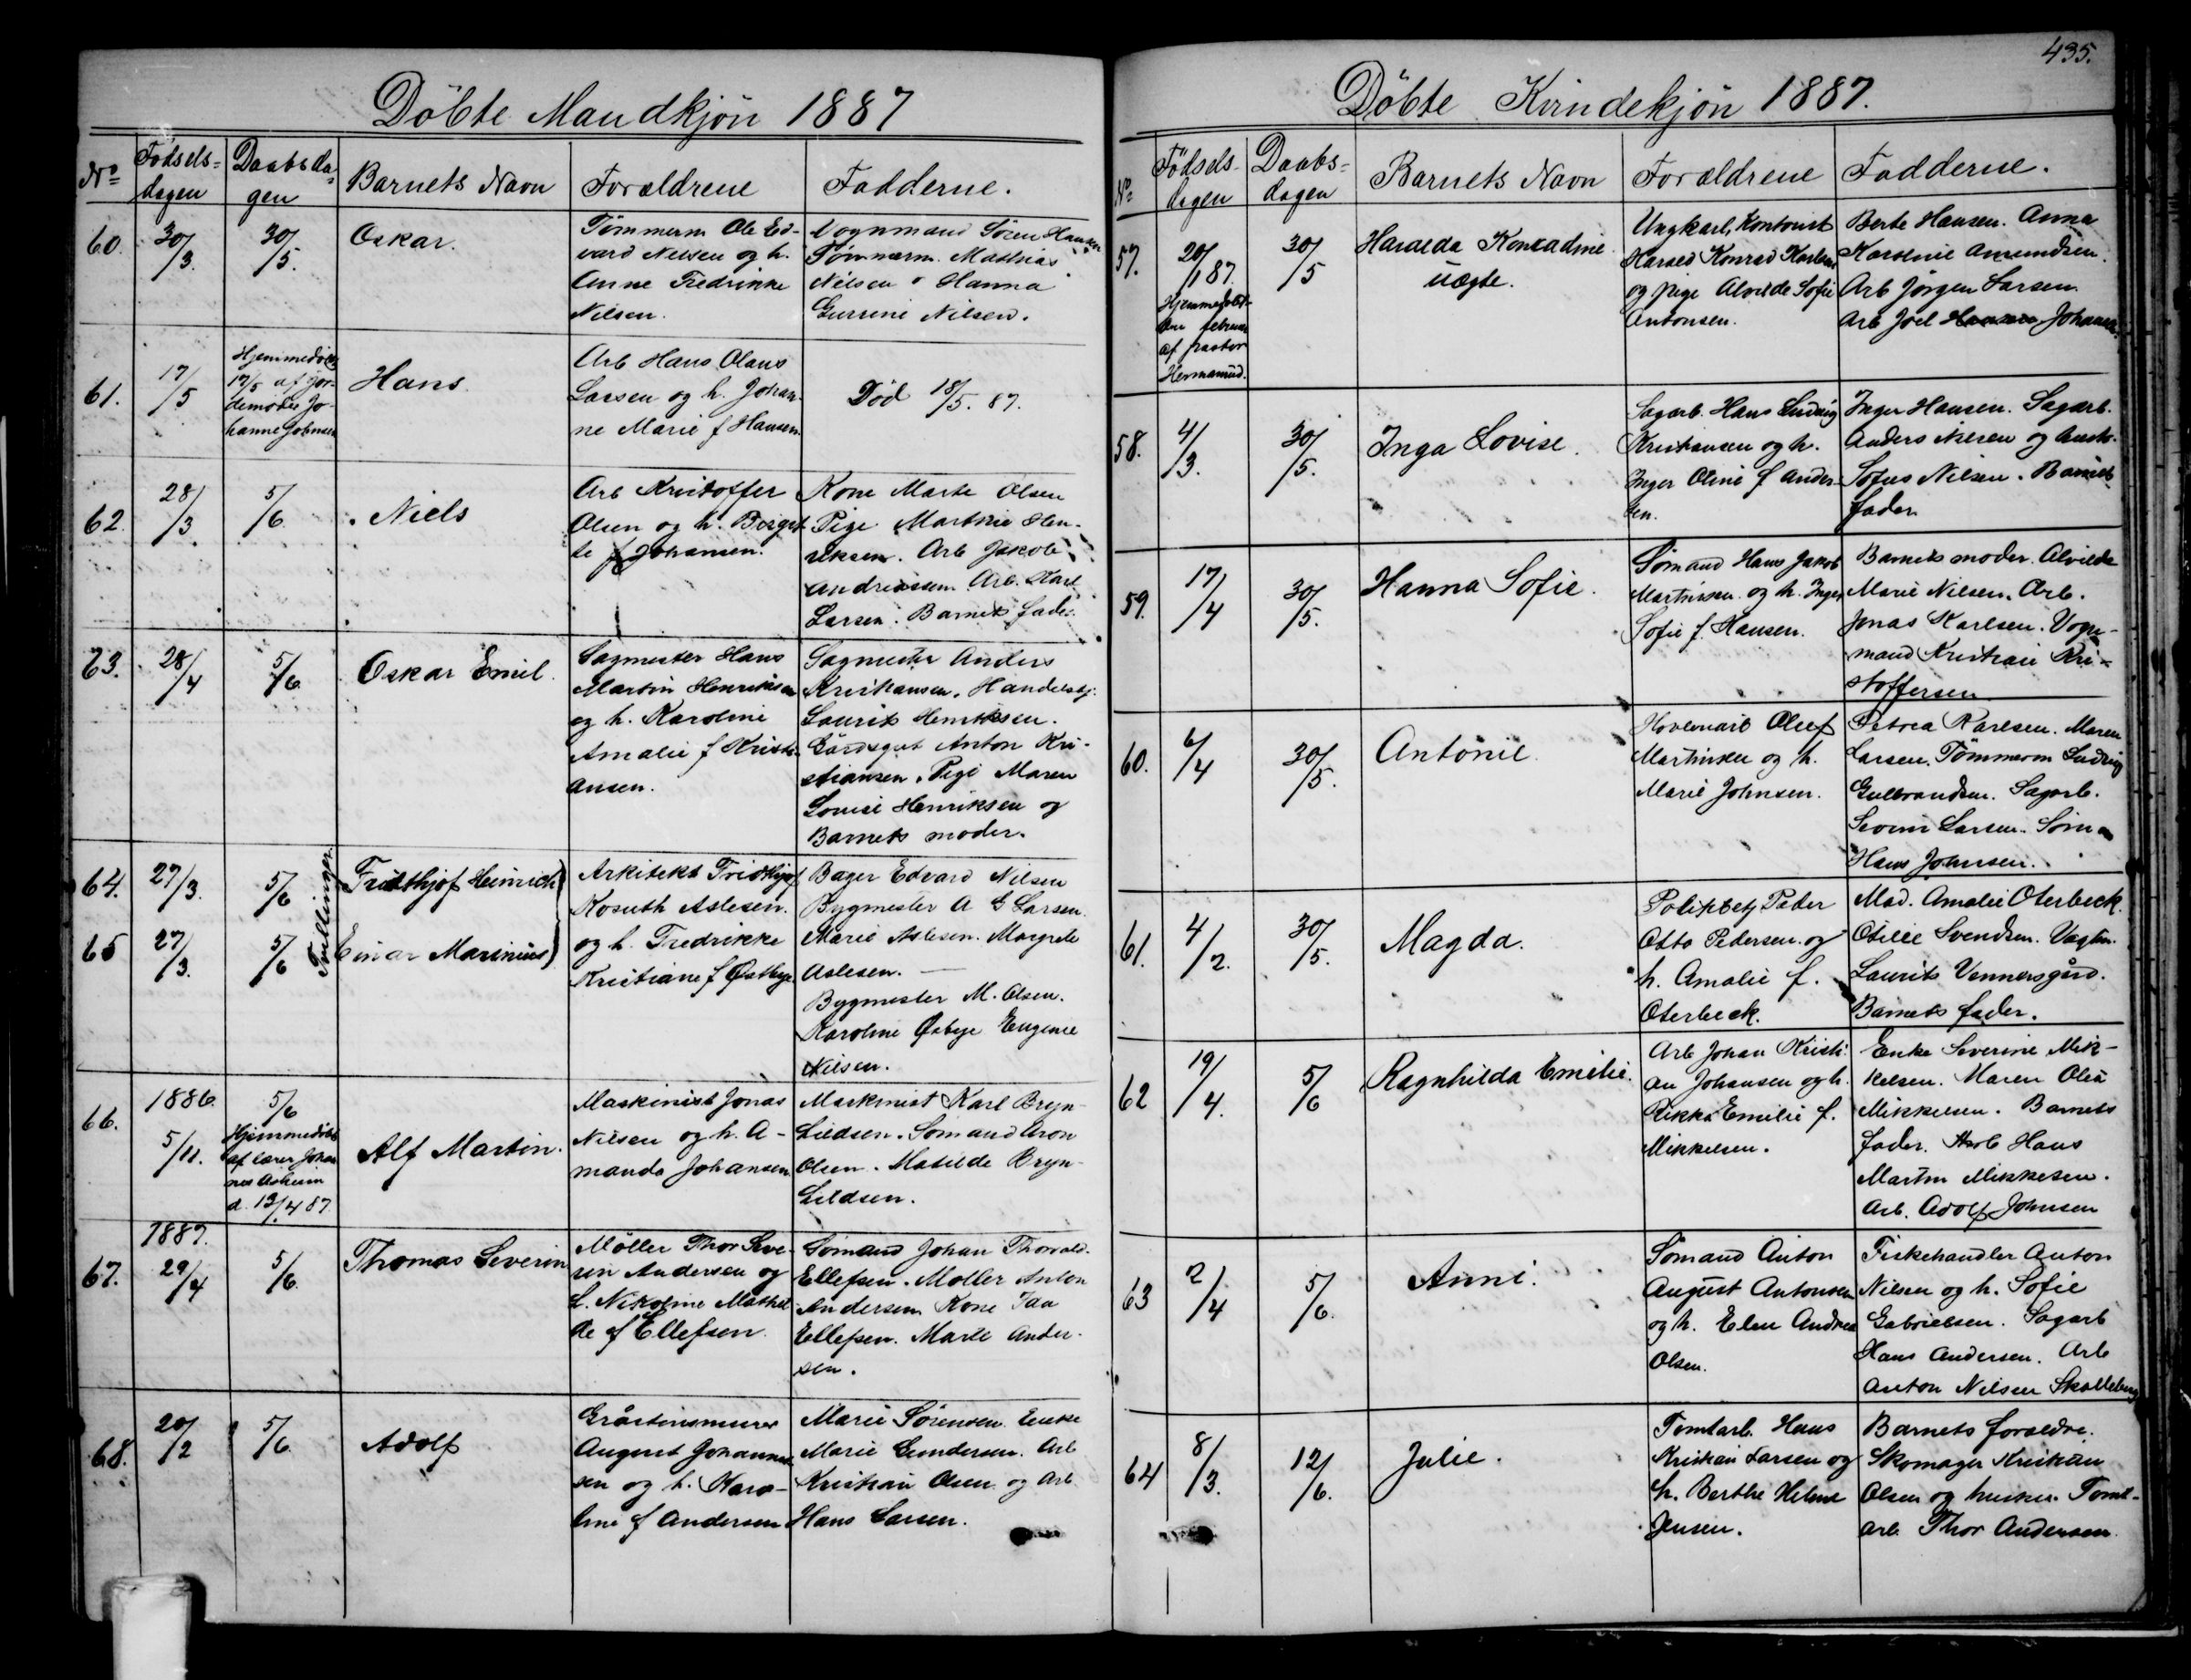 Döbte Mandkjön 1887
No
Fødsels-
dagen
Daabsda-
gen
Barnets Navn
Forældrene
Fadderne.
60.
30/3.
30/5.
Oskar.
Tømmerm Ole Ed-
vard Nilsen og h.
Anne Fredrikke
Nilsen.
Vognmand Sören Hansen
Tømmerm. Mathias
Nilsen Hanna
Nilsen.
61.
17/5
Hjemmedöbt
17/5 af Jor-
demoder Jo-
hanne Johnsen
Hans.
Arb Hans Olaus
Larsen og h. Johan-
ne Marie f Hansen.
Död 18/5. 87.
62.
28/3.
5/6
Niels
Arb Kristoffer
Olsen og h. Birgit-
te f Johansen.
Kone Marte Olsen
Pige Martine Hen-
riksen. Arb Jakob
Andreassen Arb. Karl
Larsen. Barnets fader
63.
28/4
5/6
Oskar Emil.
Sagmester Hans
Martin Henriksen
og h. Karoline
Amalie f Kristi-
ansen.
Sagmester Anders
Kristiansen. Handelsbj.
Laurits Henriksen.
Gårdsgut Anton Kri-
stiansen. Pige Maren
Louise Henriksen og
Barnets moder.
64.
27/3.
5/6
Tvillinger
Fridthjof Heinrich)
65
27/3.
5/6
Einar Marinius)
Arkitekt Fridthjof
Kosuth Aslesen.
og h. Fredrikke
Kristiane f Østbye
Bager Edvard Nilsen
Bygmester A G Larsen.
Marie Aslesen. Margrete
Aslesen. —
Bygmester M. Olsen.
Karoline Østbye Eugenie
Nilsen.
66.
1886.
5/11.
5/6
Hjemmedöbt
af lærer Johan
nes Asheim
d. 13/4 87
Alf Martin.
Maskinist Jonas
Nilsen og h. A-
manda Johansen
Maskinist Karl Bryn-
Lildsen. Sømand Aron
Olsen. Matilde Bryn-
Lildsen.
67.
1887.
29/4
5/6.
Thomas Severin
Møller Thor Seve-
rin Andersen og
h. Nikoline Mathil-
de f Ellefsen.
Sømand Johan Thorvald.
Ellefsen. Møller Anton
Andersen. Kone Ida
Ellefsen. Marte Ander-
sen.
68.
20/2
5/6.
Adolf
Gråstensmurer
August Johannes-
sen og h. Karo-
line f Andersen
Marie Sörensen. Enke
Marie Gundersen. Arb
Kristian Olsen og Arb
Hans Larsen.
435.
Döbte Kvindekjön 1887.
No
Födsels-
dagen
Daabs-
dagen
Barnets Navn
Forældrene
Fadderne.
57.
20/1 87.
Hjemmedöbt
den februar
af pastor
30/5
Haralda Konradine.
uægte.
Ungkarl, Kontorist
Harald Konrad Karlsen
og pige Alvilde Sofie
Antonsen.
Berte Hansen. Anna
Karoline Amundsen.
Arb Jörgen Larsen.
Arb Joel Hansen Johansen.
58.
4/3.
30/5.
Inga Lovise.
Sagarb. Hans Ludvig
Kristiansen og h.
Inger Oline f Ander-
sen.
Inger Hansen. Sagarb.
Anders Nilsen og hustr.
Sofus Nilsen. Barnets
fader
59.
17/4
30/5.
Hanna Sofie.
Sömand Hans Jakob
Martinsen og h. Inger
Sofie f. Hansen.
Barnets moder. Alvilde
Marie Nilsen. Arb.
Jonas Karlsen. Vogn-
mand Kristian Kri-
stoffersen
60.
6/4
30/5.
Antonie.
Høvleriarb Oluf
Martinsen og h.
Marie Johnsen.
Petrea Karlsen. Maren
Larsen. Tömmerm Ludvig
Gulbrandsen. Sagarb.
Severin Larsen. Søm
Hans Johnsen.
61.
4/2.
30/5.
Magda.
Politibetj Peder
Otto Pedersen og
h. Amalie f.
Oterbeck.
Mad. Amalie Oterbeck.
Otilie Svendsen. Vagtm.
Laurits Vennersgård.
Barnets fader.
62
19/4.
5/6
Ragnhilda Emilie.
Arb Johan Kristi-
an Johansen og h.
Rikka Emilie f.
Mikkelsen.
Enke Severine Mik-
kelsen. Maren Olea
Mikkelsen. Barnets
fader. Arb Hans
Martin Mikkelsen.
Arb. Adolf Johnsen
63
2/4
5/6.
Anni.
Sömand Anton
August Antonsen
og h. Elen Andrea
Olsen.
Fiskehandler Anton
Nilsen og h. Sofie
Gabrielsen. Sagarb
Hans Andersen. Arb
Anton Nilsen Skalleberg
64
8/3.
12/6.
Julie.
Tomtarb. Hans
Kristian Larsen og
h. Berthe Helene
Jensen.
Barnets forældre.
Skomager Kristian
Olsen og hustru. Tomt-
arb. Thor Andersen.